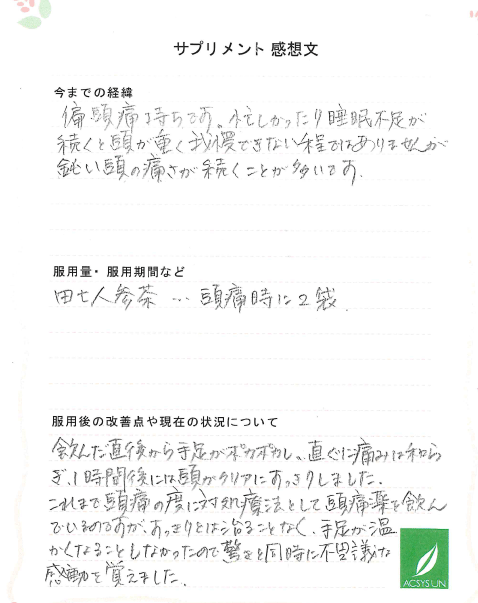 サプリメント 感想文
今までの経緯
偏頭痛持ちです。忙しかったり睡眠不足が
続くと頭が重く我慢できない程ではありませんが
鈍い頭の痛さが続くことが多いです。
服用量・服用期間など
田七人参茶 … 頭痛時に2袋.
服用後の改善点や現在の状況について
飲んだ直後から手足がポカポカし、直ぐに痛みは和ら
ぎ、1時間後には頭がクリアにすっきりしました.
これまで頭痛の度に対処療法として頭痛薬を飲ん
でいるのですが、すっきりとは治ることなく、手足が温
かくなることもなかったので驚きと同時に不思議な
感動を覚えました.
ACSYSUN